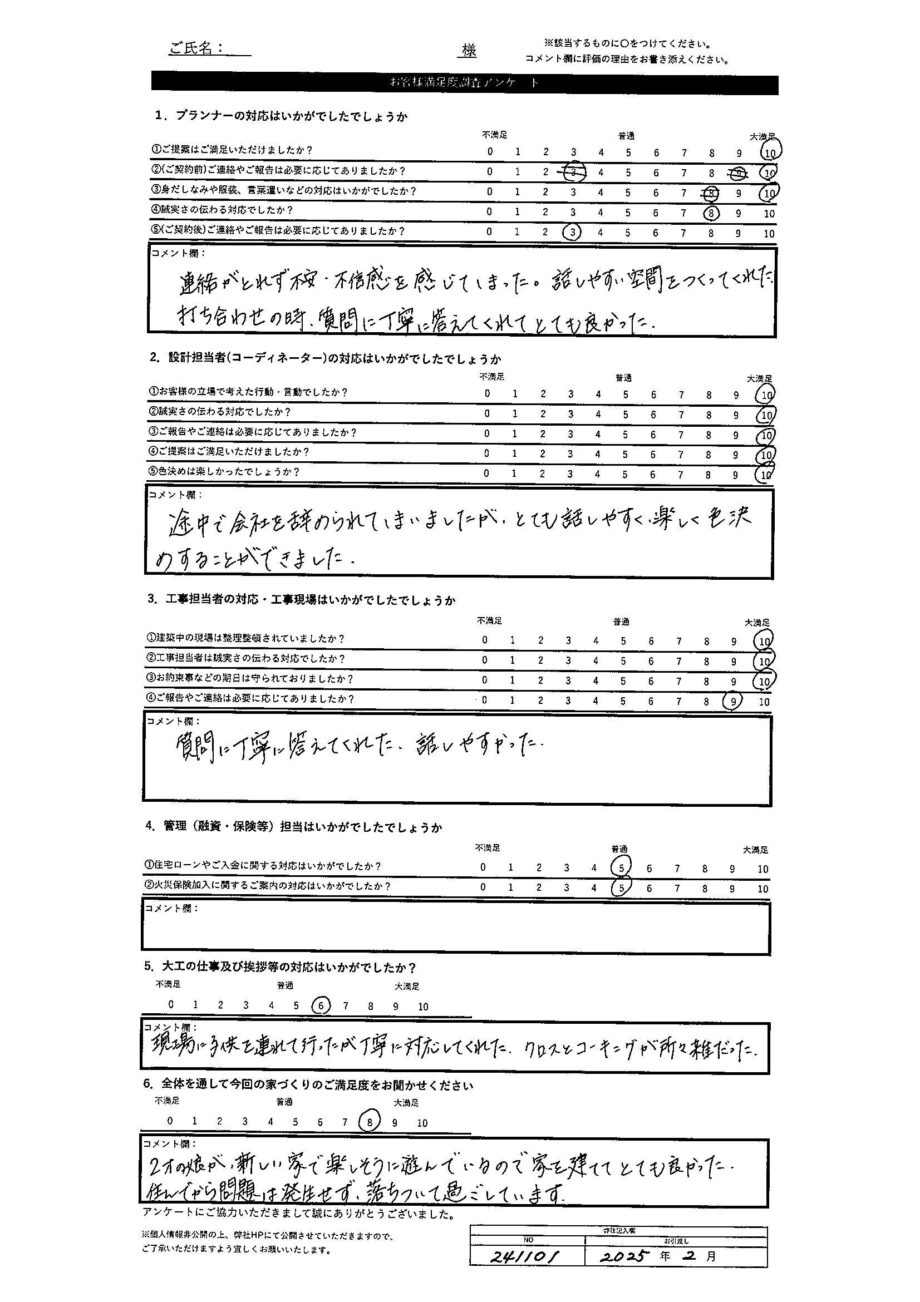 ご氏名： 様
※該当するものに〇をつけてください。
コメント欄に評価の理由をお書き添えください。
お客様満足度調査アンケート
1．プランナーの対応はいかがでしたでしょうか
不満足 普通 大満足
①ご提案はご満足いただけましたか？ 0 1 2 3 4 5 6 7 8 9 10
②(ご契約前)ご連絡やご報告は必要に応じてありましたか？ 0 1 2 3 4 5 6 7 8 9 10
③身だしなみや服装、言葉遣いなどの対応はいかがでしたか？ 0 1 2 3 4 5 6 7 8 9 10
④誠実さの伝わる対応でしたか？ 0 1 2 3 4 5 6 7 8 9 10
⑤(ご契約後)ご連絡やご報告は必要に応じてありましたか？ 0 1 2 3 4 5 6 7 8 9 10
コメント欄：
連絡がとれず不安・不信感を感じてしまった。話しやすい空間をつくってくれた
打ち合わせの時、質問に丁寧に答えてくれてとても良かった.
2．設計担当者(コーディネーター)の対応はいかがでしたでしょうか
不満足 普通 大満足
①お客様の立場で考えた行動・言動でしたか？ 0 1 2 3 4 5 6 7 8 9 10
②誠実さの伝わる対応でしたか？ 0 1 2 3 4 5 6 7 8 9 10
③ご報告やご連絡は必要に応じてありましたか？ 0 1 2 3 4 5 6 7 8 9 10
④ご提案はご満足いただけましたか？ 0 1 2 3 4 5 6 7 8 9 10
⑤色決めは楽しかったでしょうか？ 0 1 2 3 4 5 6 7 8 9 10
コメント欄：
途中で会社を辞められてしまいましたが、とても話しやすく、楽しく色決
めすることができました.
3．工事担当者の対応・工事現場はいかがでしたでしょうか
不満足 普通 大満足
①建築中の現場は整理整頓されていましたか？ 0 1 2 3 4 5 6 7 8 9 10
②工事担当者は誠実さの伝わる対応でしたか？ 0 1 2 3 4 5 6 7 8 9 10
③お約束事などの期日は守られておりましたか？ 0 1 2 3 4 5 6 7 8 9 10
④ご報告やご連絡は必要に応じてありましたか？ 0 1 2 3 4 5 6 7 8 9 10
コメント欄：
質問に丁寧に答えてくれた、話しやすかった.
4．管理（融資・保険等）担当はいかがでしたでしょうか
不満足 普通 大満足
①住宅ローンやご入金に関する対応はいかがでしたか？ 0 1 2 3 4 5 6 7 8 9 10
②火災保険加入に関するご案内の対応はいかがでしたか？ 0 1 2 3 4 5 6 7 8 9 10
コメント欄：
5．大工の仕事及び挨拶等の対応はいかがでしたか？
不満足 普通 大満足
0 1 2 3 4 5 6 7 8 9 10
コメント欄：
現場に子供を連れて行ったが丁寧に対応してくれた. クロスとコーキングが所々雑だった.
6．全体を通して今回の家づくりのご満足度をお聞かせください
不満足 普通 大満足
0 1 2 3 4 5 6 7 8 9 10
コメント欄：
2才の娘が、新しい家で楽しそうに遊んでいるので家を建ててとても良かった.
住んでから問題は発生せず、落ちついて過ごしています.
アンケートにご協力いただきまして誠にありがとうございました。
※個人情報非公開の上、弊社HPにて公開させていただきますので、
ご了承いただけますよう宜しくお願いいたします。
弊社記入欄
NO お引渡し
241101 2025 年 2 月